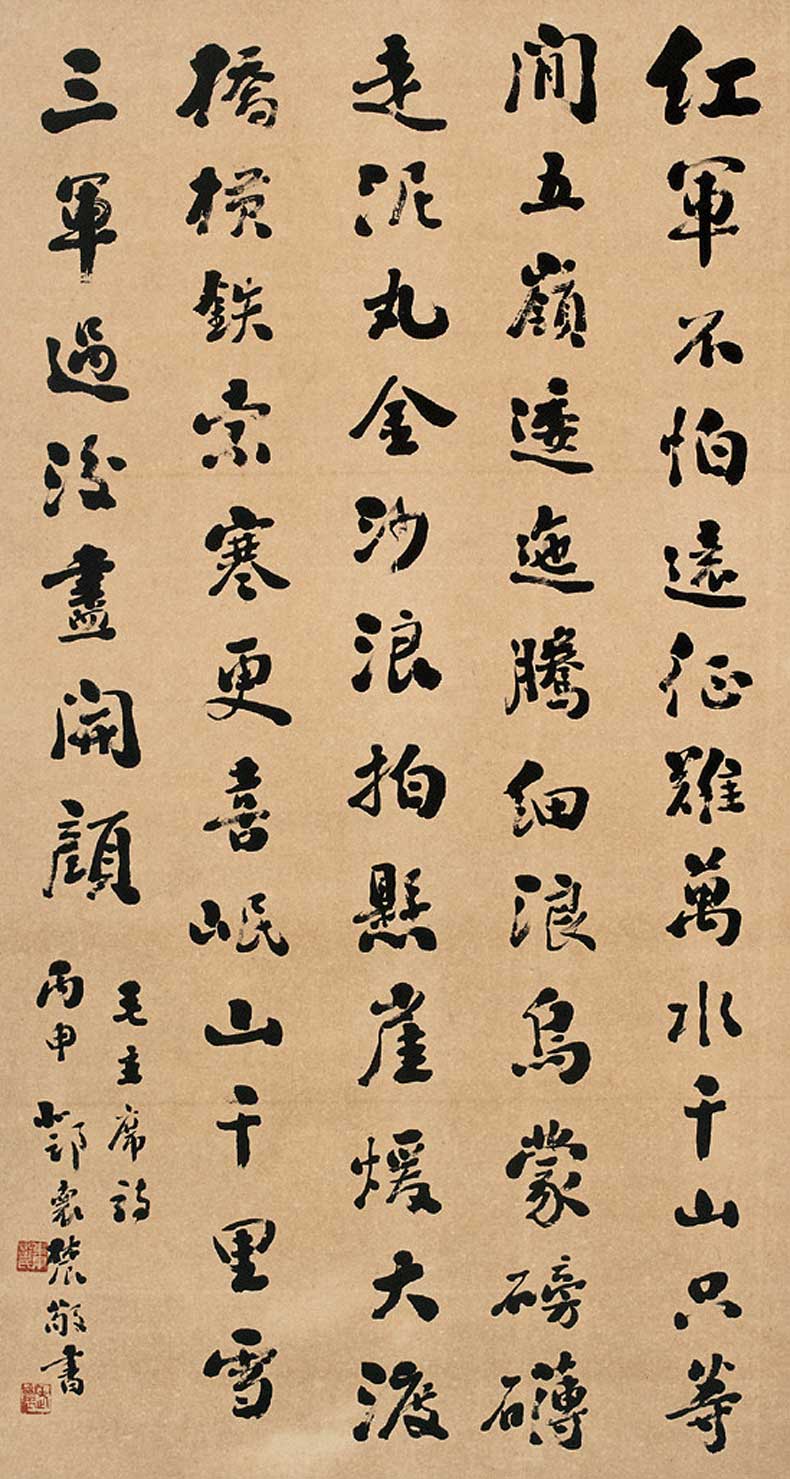 红軍不怕遠征難萬水千山只等
閒五嶺逶迤騰細浪烏蒙磅礴
走泥丸金沙浪拍懸崖煖大渡
橋横鉄索寒更喜岷山千里雪
三軍過後盡開顔
毛主席詩
丙申敬書